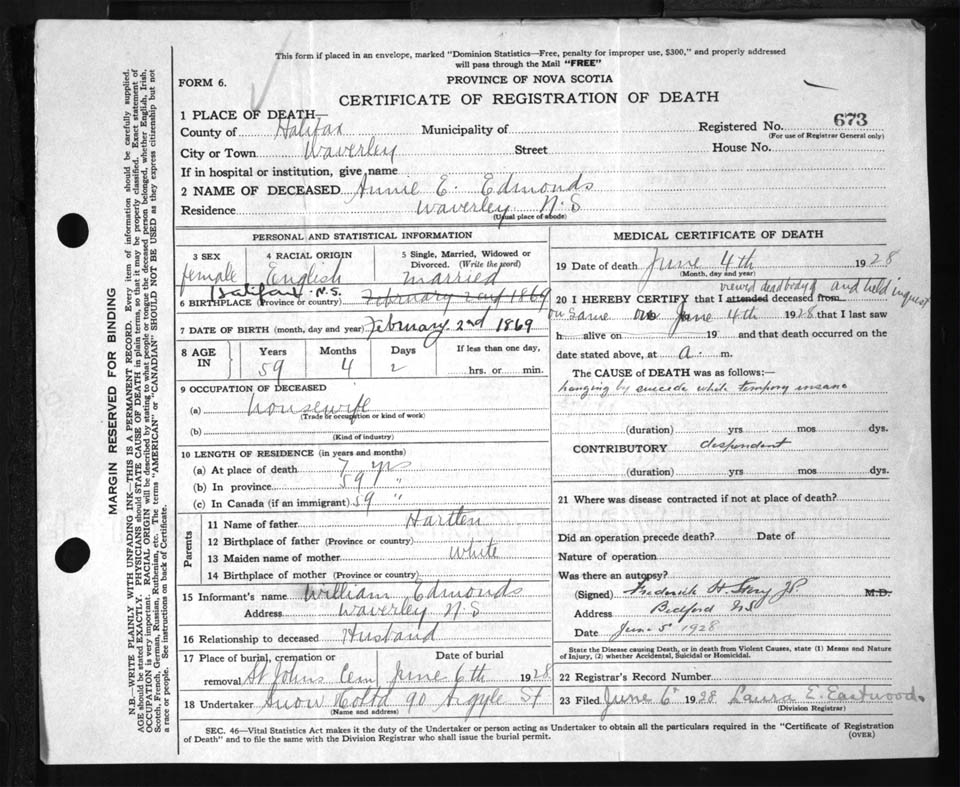 This form if placed in an envelope, marked "Dominion Statistics—Free, penalty for improper use, $300," and properly addressed
will pass through the Mail "FREE"
FORM 6.
PROVINCE OF NOVA SCOTIA
CERTIFICATE OF REGISTRATION OF DEATH
1 PLACE OF DEATH—
County of Halifax Municipality of Registered No. 673
(For use of Registrar General only)
City or Town Waverley Street House No.
If in hospital or institution, give name
2 NAME OF DECEASED Annie E. Edmonds
Residence Waverley N.S
(Usual place of abode)
PERSONAL AND STATISTICAL INFORMATION
3 SEX 4 RACIAL ORIGIN 5 Single, Married, Widowed or Divorced. (Write the word)
female English Married
Halifax N.S.
6 BIRTHPLACE (Province or country) February 2nd 1869
7 DATE OF BIRTH (month, day and year) February 2nd 1869
8 AGE IN Years Months Days If less than one day,
59 4 2 hrs. or min.
9 OCCUPATION OF DECEASED
(a) housewife
(Trade or occupation or kind of work)
(b)
(Kind of industry)
10 LENGTH OF RESIDENCE (in years and months)
(a) At place of death 7 yrs
(b) In province 59 "
(c) In Canada (if an immigrant) 59 "
Parents
11 Name of father Hartlen
12 Birthplace of father (Province or country)
13 Maiden name of mother White
14 Birthplace of mother (Province or country)
15 Informant's name William Edmonds
Address Waverley N.S
16 Relationship to deceased Husband
17 Place of burial, cremation or Date of burial
removal St Johns Cem June 6th 1928
18 Undertaker Snow 90 Argyle St
(Name and address)
MEDICAL CERTIFICATE OF DEATH
19 Date of death June 4th 1928
(Month, day and year)
viewed dead body and held inquest
20 I HEREBY CERTIFY that I attended deceased from
on same June 4th 1928 that I last saw
h alive on 19 and that death occurred on the
date stated above, at A. m.
The CAUSE of DEATH was as follows:—
hanging by suicide while tempory insane
(duration) yrs mos dys.
CONTRIBUTORY despondent
(duration) yrs mos dys.
21 Where was disease contracted if not at place of death?
Did an operation precede death? Date of
Nature of operation
Was there an autopsy?
(Signed) Frederick H. J.P. M.D.
Address Bedford NS
Date June 5 1928
State the Disease causing Death, or in death from Violent Causes, state (1) Means and Nature
of Injury, (2) whether Accidental, Suicidal or Homicidal.
22 Registrar's Record Number
23 Filed June 6th 1928 Laura E. Eastwood
(Division Registrar)
SEC. 46—Vital Statistics Act makes it the duty of the Undertaker or person acting as Undertaker to obtain all the particulars required in the "Certificate of Registration
of Death" and to file the same with the Division Registrar who shall issue the burial permit.
(OVER)
MARGIN RESERVED FOR BINDING
N.B.—WRITE PLAINLY WITH UNFADING INK—THIS IS A PERMANENT RECORD. Every item of information should be carefully supplied.
AGE should be stated EXACTLY. PHYSICIANS should STATE CAUSE OF DEATH in plain terms, so that it may be properly classified. Exact statement of
OCCUPATION is very important. RACIAL ORIGIN will be described by stating to what people or tongue the deceased person belonged, whether English, Irish,
Scotch, French, German, Russian, Ruthenian, etc. The terms "AMERICAN" or "CANADIAN" SHOULD NOT BE USED as they express citizenship but not
a race or people. See instructions on back of Certificate.